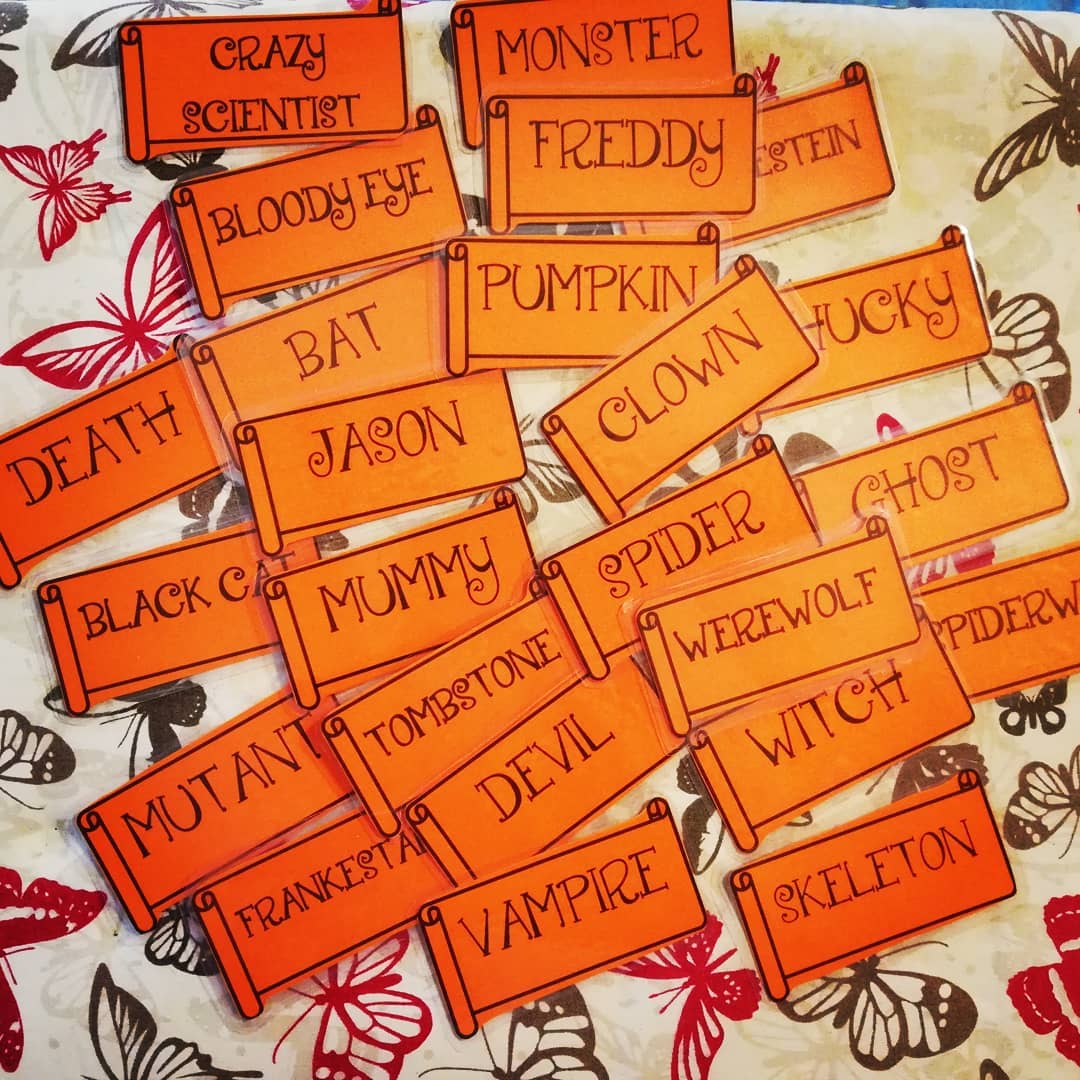 CRAZY
SCIENTIST
MONSTER
FREDDY
ESTEIN
BLOODY EYE
PUMPKIN
HUCKY
BAT
CLOWN
DEATH
JASON
GHOST
SPIDER
BLACK CAT
MUMMY
WEREWOLF
SPIDERW
TOMBSTONE
WITCH
MUTANT
DEVIL
FRANKESTA
VAMPIRE
SKELETON